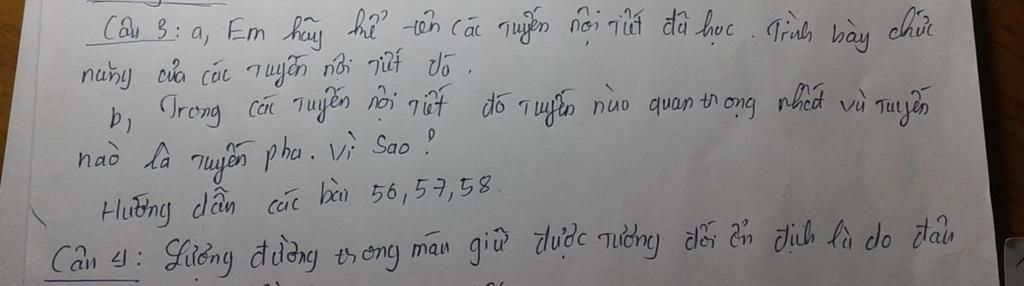 Câu 3: a, Em hãy kể tên các tuyến nội tiết đã học. Trình bày chức
năng của các tuyến nội tiết đó.
b, Trong các tuyến nội tiết đó tuyến nào quan trọng nhất và tuyến
nào là tuyến pha. Vì sao?
Hướng dẫn các bài 56, 57, 58.
Câu 4: Lượng đường trong máu giữ được tương đối ổn định là do đâu